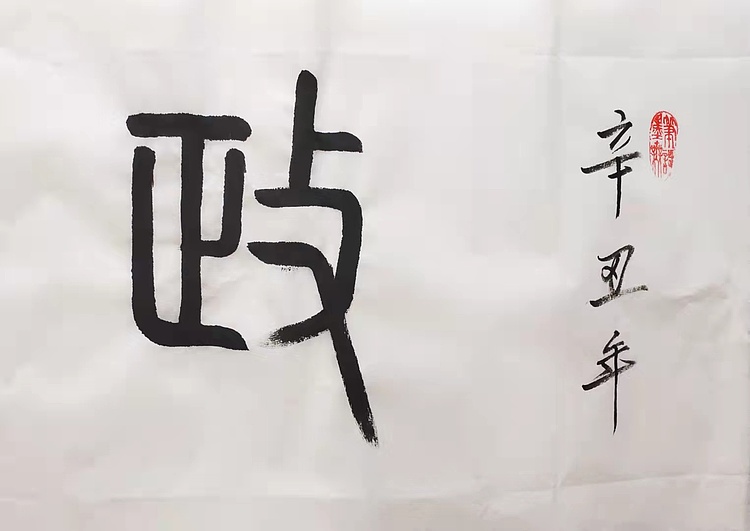 政
辛丑年